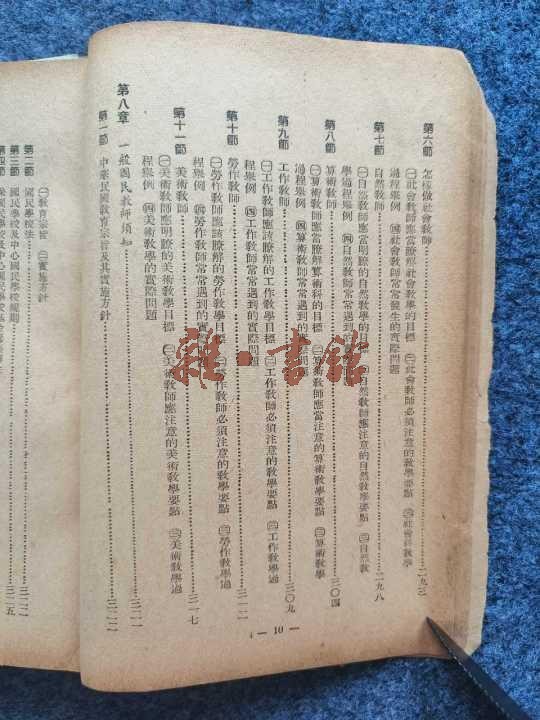 第六節 怎樣做社會教師……二九三
㈠社會教師應當瞭解社會教學的目標 ㈡社會教師必須注意的教學要點 ㈢社會科教學
過程舉例 ㈣社會教師常常發生的實際問題
第七節 自然教師……二九八
㈠自然教師應當明瞭的自然教學的目標 ㈡自然教師應注意的自然教學要點 ㈢自然教
學過程舉例 ㈣自然教師常常遇到的實際問題
第八節 算術教師……三〇四
㈠算術教師應當瞭解算術科的目標 ㈡算術教師應當注意的算術教學要點 ㈢算術教學
過程舉例 ㈣算術教師常常遇到的實際問題
第九節 工作教師……三〇九
㈠工作教師應該瞭解的工作教學目標 ㈡工作教師必須注意的教學要點 ㈢工作教學過
程舉例 ㈣工作教師常常遇到的實際問題
第十節 勞作教師……三一二
㈠勞作教師應該瞭解的勞作教學目標 ㈡勞作教師必須注意的教學要點 ㈢勞作教學過
程舉例 ㈣勞作教師常常遇到的實際
第十一節 美術教師……三一七
㈠美術教師應明瞭的美術教學目標 ㈡美術教師應注意的美術教學要點 ㈢美術教學過
程舉例 ㈣美術教學的實際問題
第八章 一般國民教師須知……三二二
第一節 中華民國教育宗旨及其實施方針……三二二
㈠教育宗旨 ㈡實施方針
第二節 國民學校法……三二二
第三節 國民學校及中心國民學校規則……三二五
第四節
— 10 —
雜·書館